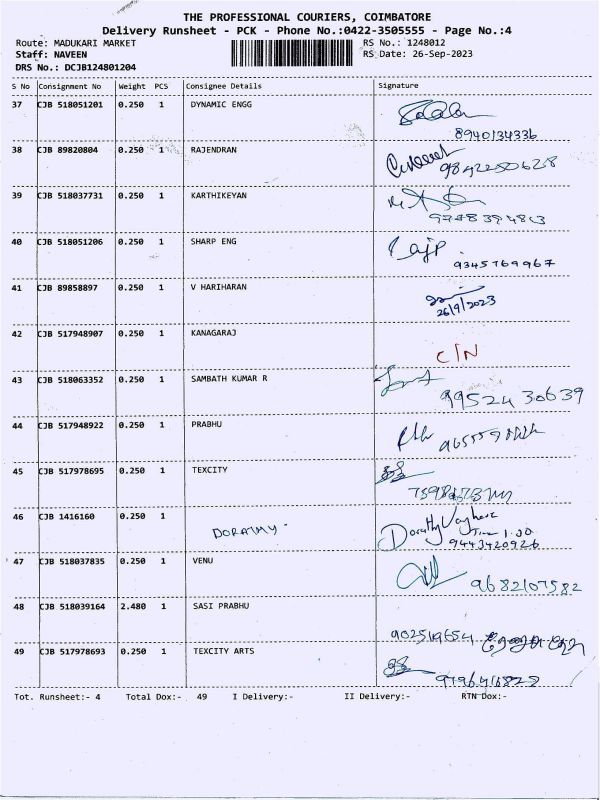 THE PROFESSIONAL COURIERS, COIMBATORE
Delivery Runsheet - PCK - Phone No.:0422-3505555 - Page No.:4
Route: MADUKARI MARKET RS No.: 1248012
Staff: NAVEEN RS Date: 26-Sep-2023
DRS No.: DCJB124801204
S No Consignment No Weight PCS Consignee Details Signature
37 CJB 518051201 0.250 1 DYNAMIC ENGG
8940134336
38 CJB 89820804 0.250 1 RAJENDRAN
9842250628
39 CJB 518037731 0.250 1 KARTHIKEYAN
40 CJB 518051206 0.250 1 SHARP ENG
9345769967
41 CJB 89858897 0.250 1 V HARIHARAN
26/9/2023
42 CJB 517948907 0.250 1 KANAGARAJ
C/N
43 CJB 518063352 0.250 1 SAMBATH KUMAR R
99524 30639
44 CJB 517948922 0.250 1 PRABHU
45 CJB 517978695 0.250 1 TEXCITY
46 CJB 1416160 0.250 1
DORATHY - Dorathy
Time 1.00
9443420926
47 CJB 518037835 0.250 1 VENU
9682107582
48 CJB 518039164 2.480 1 SASI PRABHU
49 CJB 517978693 0.250 1 TEXCITY ARTS
Tot. Runsheet:- 4 Total Dox:- 49 I Delivery:- II Delivery:- RTN Dox:-